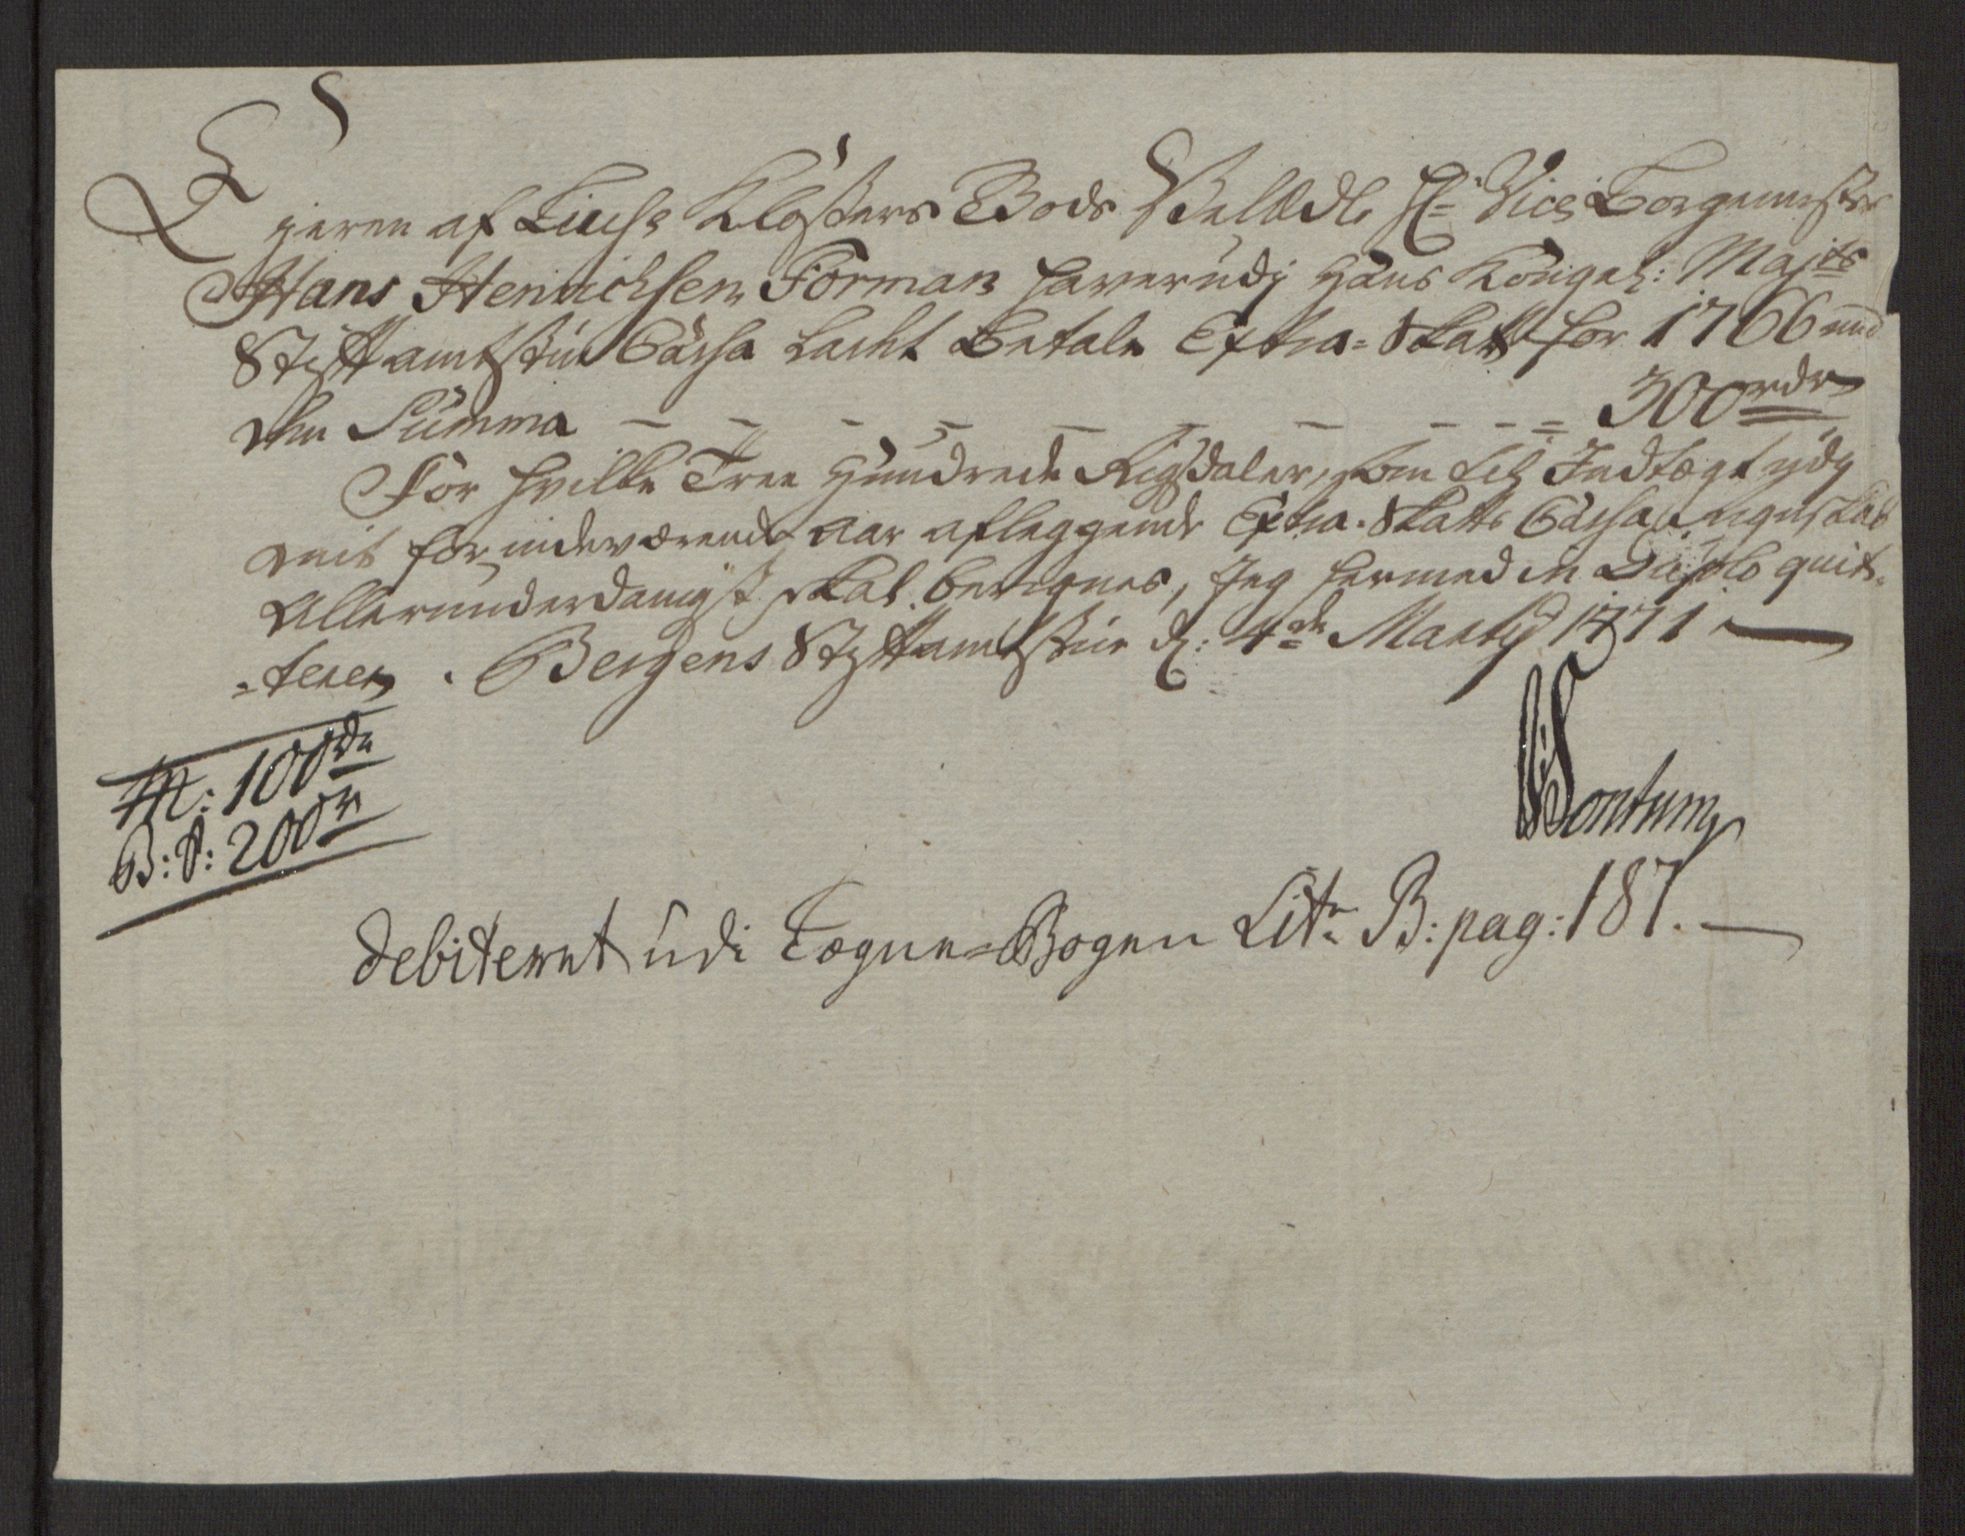 Ejeren af Liuchs Klosters Gods Velædle Hr: Vice Borgemester
Hans Henrichsen Forman haver udj Hans Kongel: Majts
Stiftamtstue Cassa ladet betale Extra-Skatt for 1766 med
den Summa - - - - - - - - - - = 300 rdr
For hvilke Tree Hundrede Rigsdaler, som till Indtægt udj
mit for indeværende aar aflæggende Extra-Skatts Cassa Regnskab
Allerunderdanigst skal beregnes, Jeg hermed in Duplo quit-
-terer. Bergens Stiftamtstue d: 4de Martij 1771
M: 100 rdr
B: S: 200 r
Wontum
debiteret udi Tegne-Bogen Litr B: pag: 187.